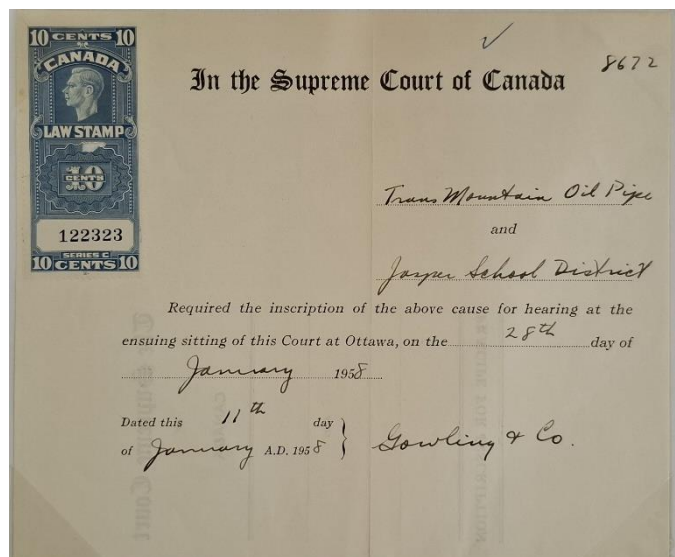 10 CENTS 10
CANADA
LAW STAMP
10
CENTS
122323
SERIES C
10 CENTS 10
8672
In the Supreme Court of Canada
Trans Mountain Oil Pipe
and
Jasper School District
Required the inscription of the above cause for hearing at the
ensuing sitting of this Court at Ottawa, on the 28th day of
January 1958
Dated this 11th day
of January A.D. 1958
Gowling & Co.